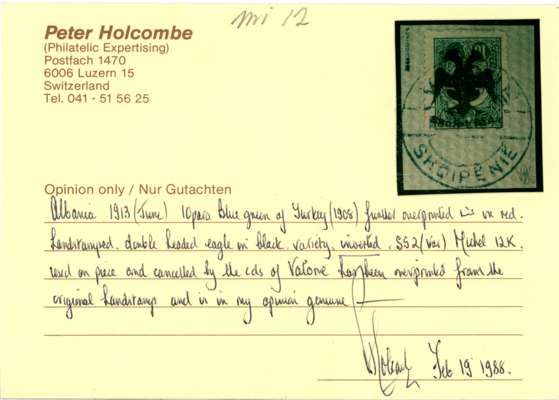 mi 12
Peter Holcombe
(Philatelic Expertising)
Postfach 1470
6006 Luzern 15
Switzerland
Tel. 041 - 51 56 25
SHQIPENIE
Opinion only / Nur Gutachten
Albania 1913 (June) 10para blue green of Turkey (1908) further overprinted in red.
handstamped double headed eagle in black variety inverted. SG2 (var) Michel 12K.
used on piece and cancelled by the cds of Valone has been overprinted from the
original handstamp and is in my opinion genuine
Holcombe Feb 19 1988.